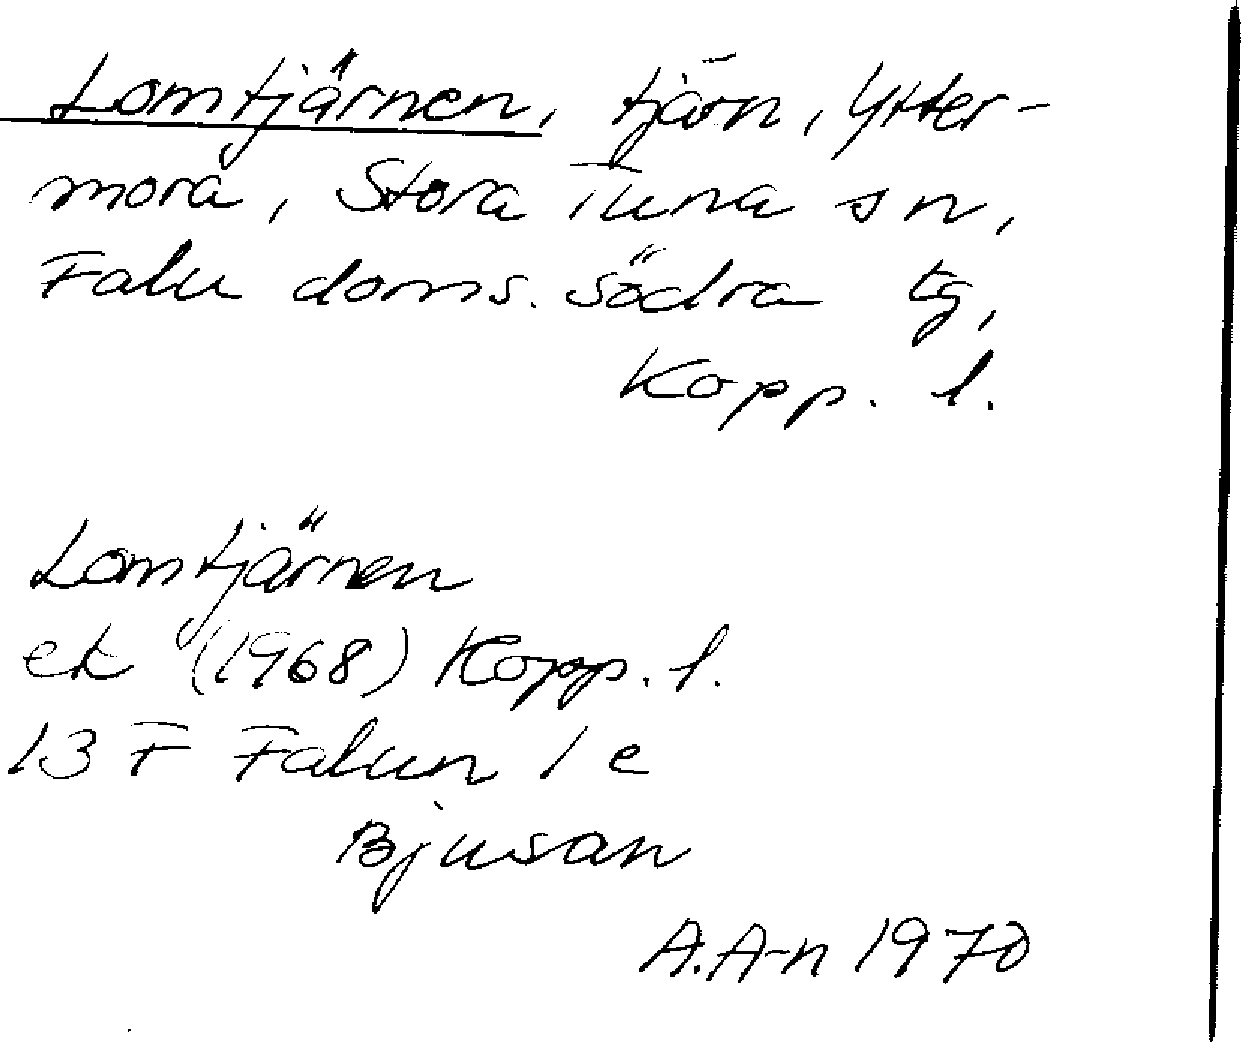 Lomtjärnen, tjärn, Ytter-
mora, Stora Tuna sn,
Falu doms. södra tg,
Kopp. l.
Lomtjärnen
ek (1968) Kopp. l.
13 F Falun 1 e
Bjusan
A.A-n 1970